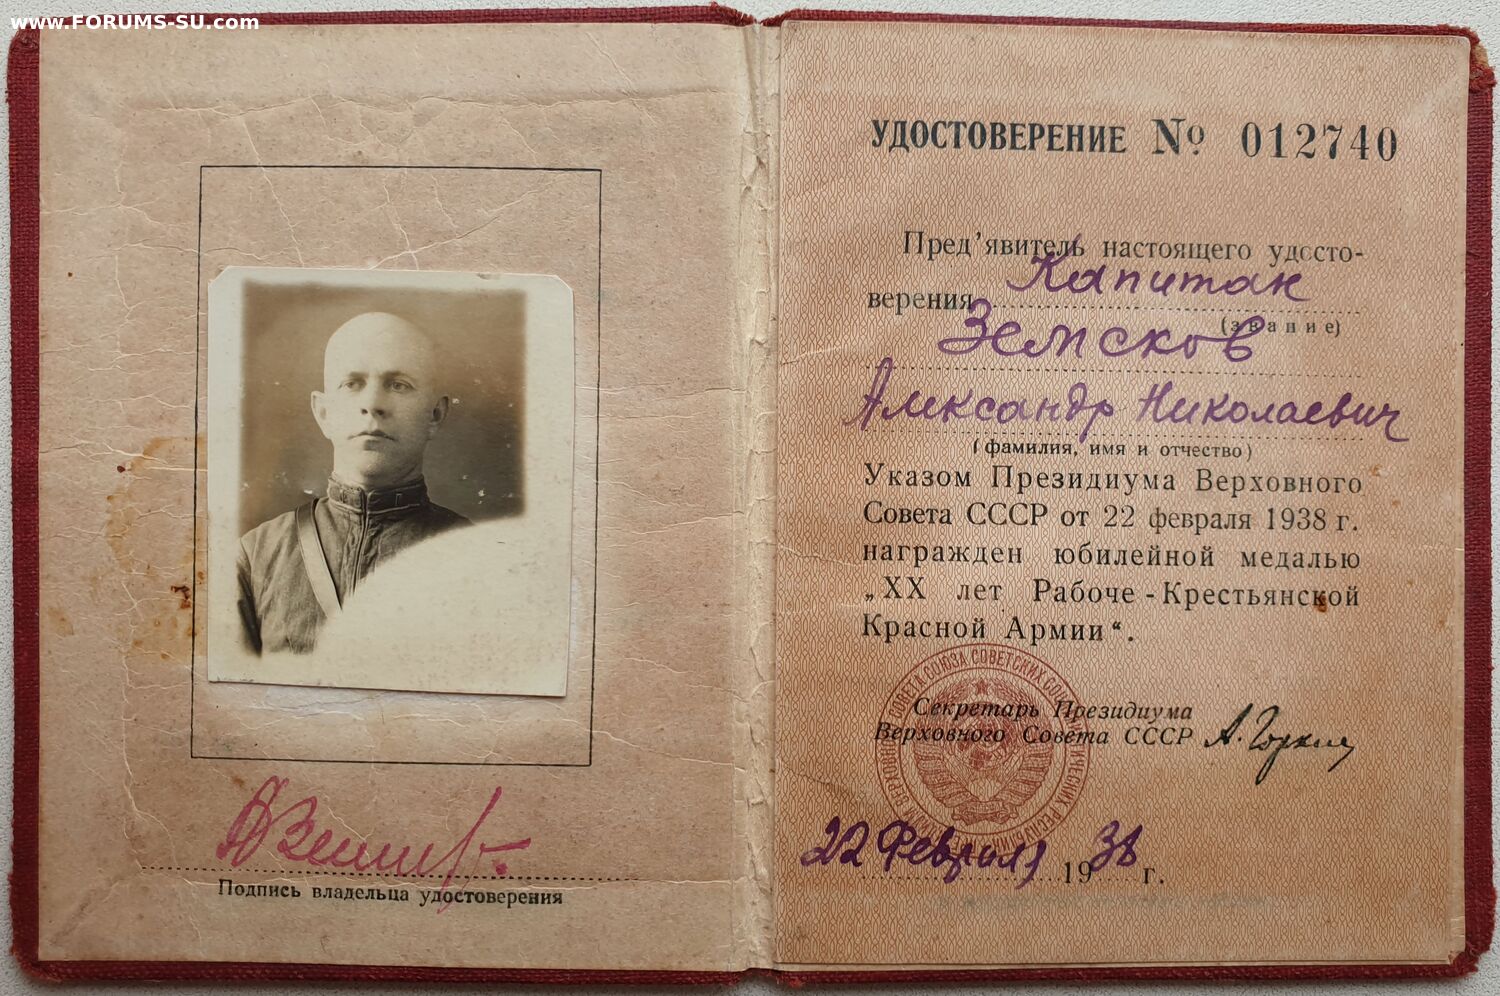 www.FORUMS-SU.com
Подпись владельца удостоверения
УДОСТОВЕРЕНИЕ № 012740
Пред'явитель настоящего удосто-
верения Капитан
(звание)
Земсков
Александр Николаевич
(фамилия, имя и отчество)
Указом Президиума Верховного
Совета СССР от 22 февраля 1938 г.
награжден юбилейной медалью
„XX лет Рабоче-Крестьянской
Красной Армии“.
Секретарь Президиума
Верховного Совета СССР А. Горкин
22 февраля 1938 г.